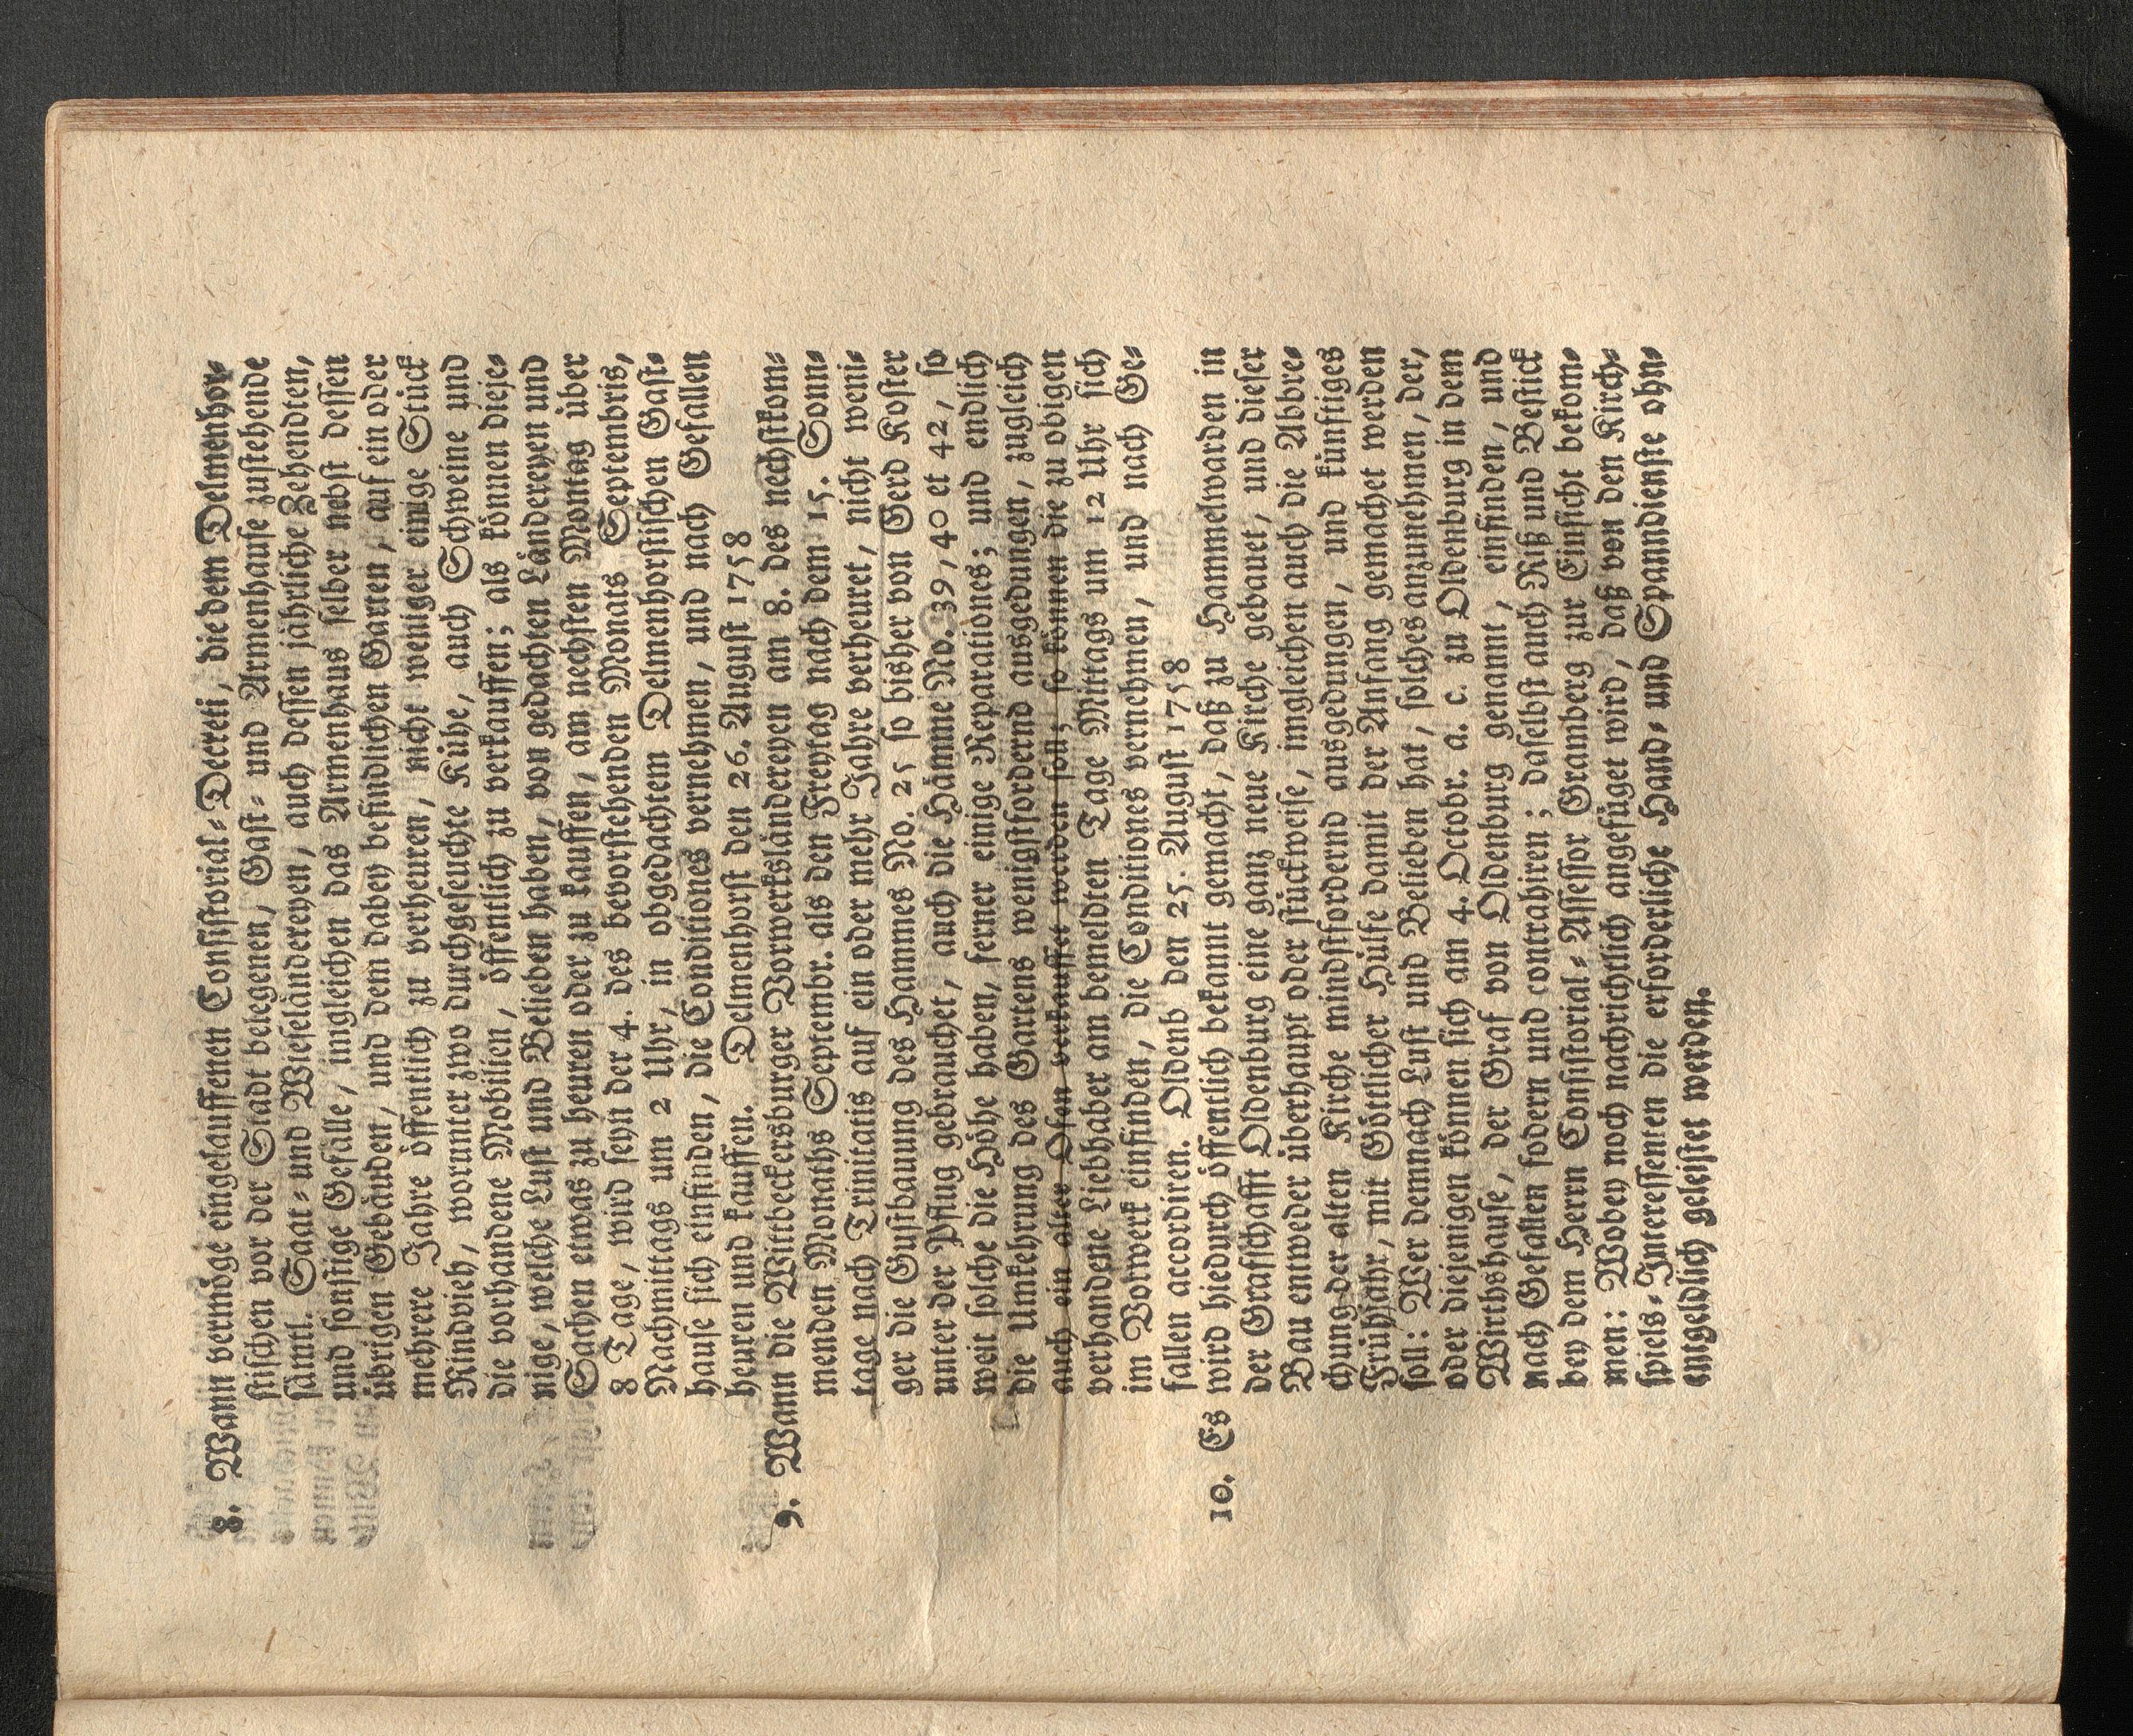 8. Wann vermöge eingelauffenen Consistorial-Decreti, die dem Delmenhor-
stischen vor der Stadt belegenen, Gast- und Armenhause zustehende
sämtl. Saat- und Wieseländereyen, auch dessen jährliche Zehendten,
und sonstige Gefälle, imgleichen das Armenhaus selber nebst dessen
übrigen Gebäuden, und dem dabey befindlichen Garten, auf ein oder
mehrere Jahre öffentlich zu verheuren, nicht weniger einige Stück
Rindvieh, worunter zwo durchgeseuchte Kühe, auch Schweine und
die vorhandene Mobilien, öffentlich zu verkauffen; als können dieje-
nige, welche Lust und Belieben haben, von gedachten Ländereyen und
Sachen etwas zu heuren oder zu kauffen, am nechsten Montag über
8 Tage, wird seyn der 4. des bevorstehenden Monats Septembris,
Nachmittags um 2 Uhr, in obgedachtem Delmenhorstischen Gast-
hause sich einfinden, die Conditiones vernehmen, und nach Gefallen
heuren und kauffen. Delmenhorst den 26. August 1758
9. Wann die Wittbeckersburger Vorwerksländereyen am 8. des nechstkom-
menden Monaths Septembr. als den Freytag nach dem 15. Sonn-
tage nach Trinitatis auf ein oder mehr Jahre verheuret, nicht weni-
ger die Gustbauung des Hammes No. 25 so bisher von Gerd Koster
unter der Pflug gebrauchet, auch die Hämme No. 39, 40 et 42, so
weit solche die Höhe haben, ferner einige Reparationes; und endlich
die Umkehrung des Gartens wenigstfordernd ausgedungen, zugleich
auch ein alter Ofen verkauffet werden soll; so können die zu obigen
verhandene Liebhaber am bemeldten Tage Mittags um 12 Uhr sich
im Vorwerk einfinden, die Conditiones vernehmen, und nach Ge-
fallen accordiren. Oldenb den 25. August 1758
10. Es wird hiedurch öffentlich bekannt gemacht, daß zu Hammelwarden in
der Grafschafft Oldenburg eine ganz neue Kirche gebauet, und dieser
Bau entweder überhaupt oder stückweise, imgleichen auch die Abbre-
chung der alten Kirche mindstfordernd ausgedungen, und künftiges
Frühjahr, mit Göttlicher Hülfe damit der Anfang gemachet werden
soll: Wer demnach Lust und Belieben hat, solches anzunehmen, der,
oder diejenigen können sich am 4. Octobr. a. c. zu Oldenburg in dem
Wirthshause, der Graf von Oldenburg genannt, einfinden, und
nach Gefallen fodern und contrahiren; daselbst auch Riß und Bestick
bey dem Herrn Consistorial-Assessor Gramberg zur Einsicht bekom-
men: Wobey noch nachrichtlich angefüget wird, daß von den Kirch-
spiels-Interessenten die erforderliche Hand- und Spanndienste ohn-
entgeldlich geleistet werden.